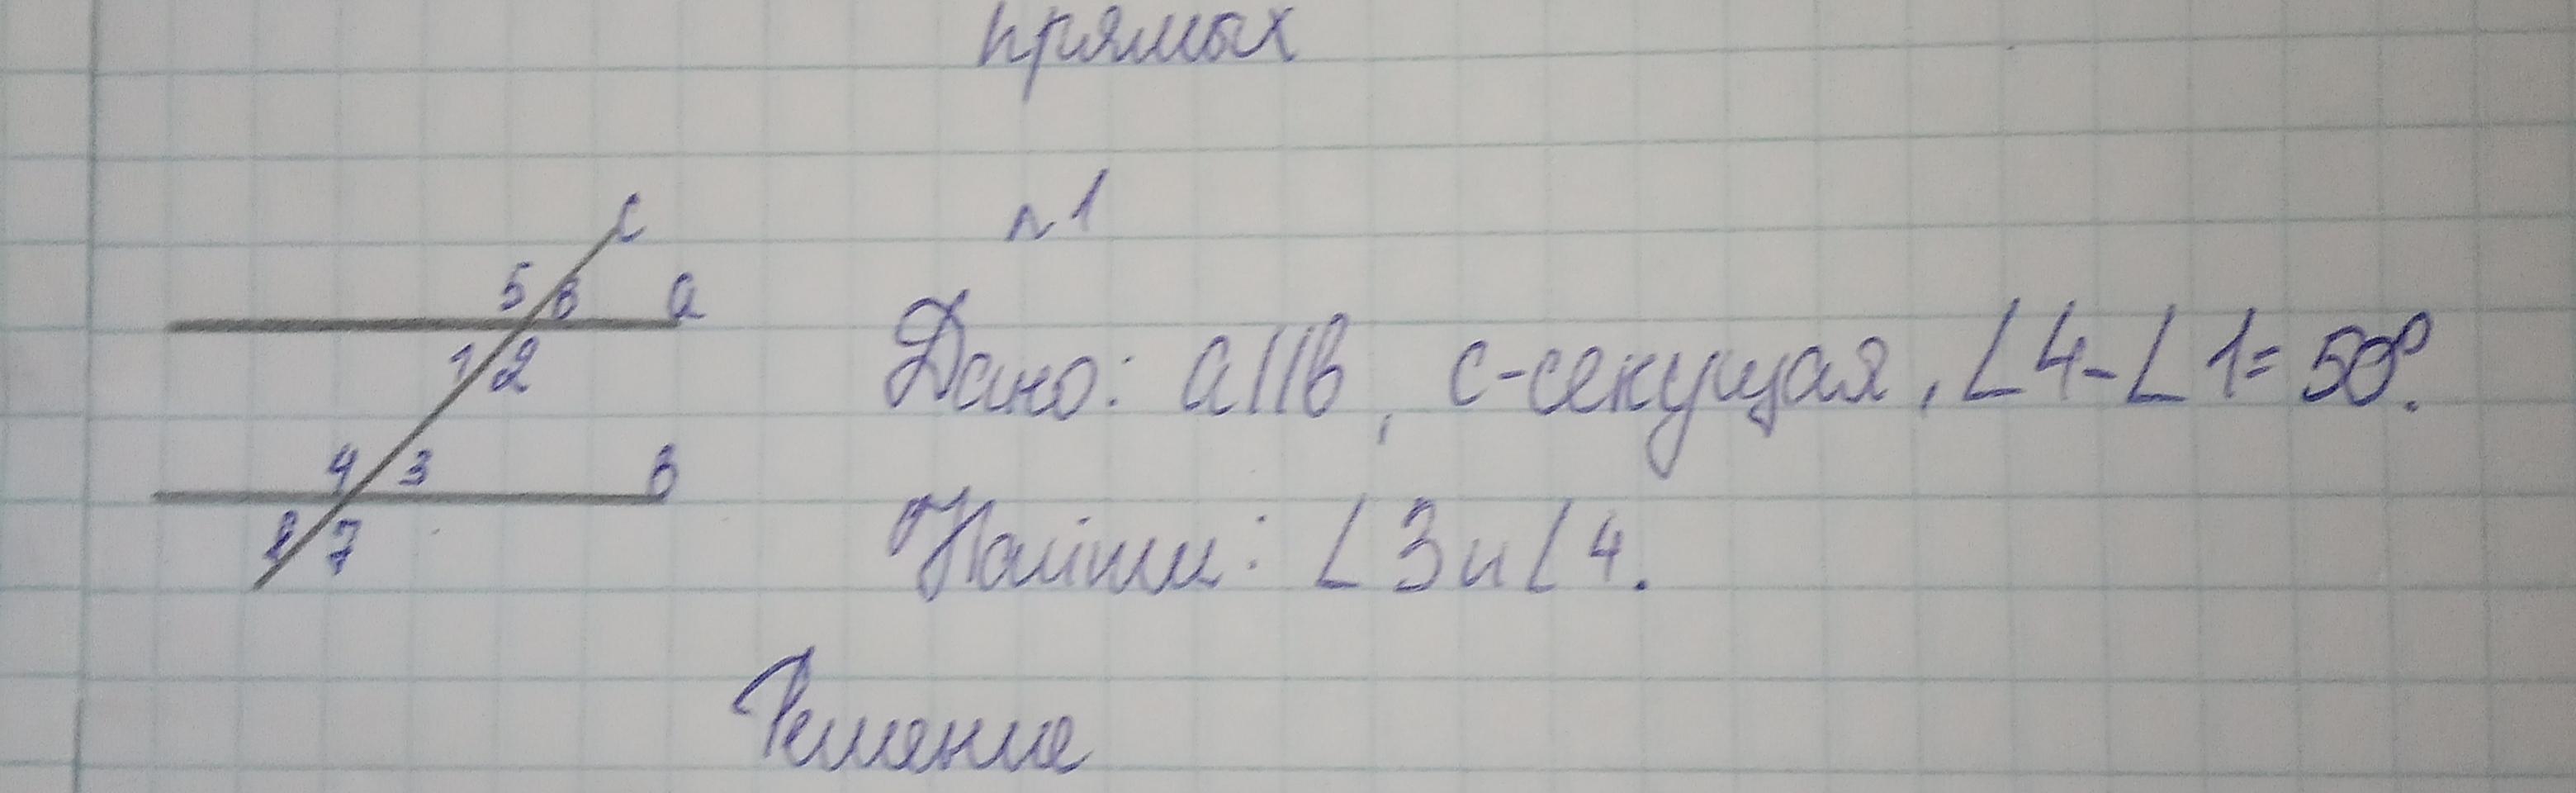 прямых
n 1
c
5 6 a
1 2
4 3 в
8 7
Дано: a||в, c-секущая, ∠4-∠1=50°.
Найти: ∠3 и ∠4.
Решение